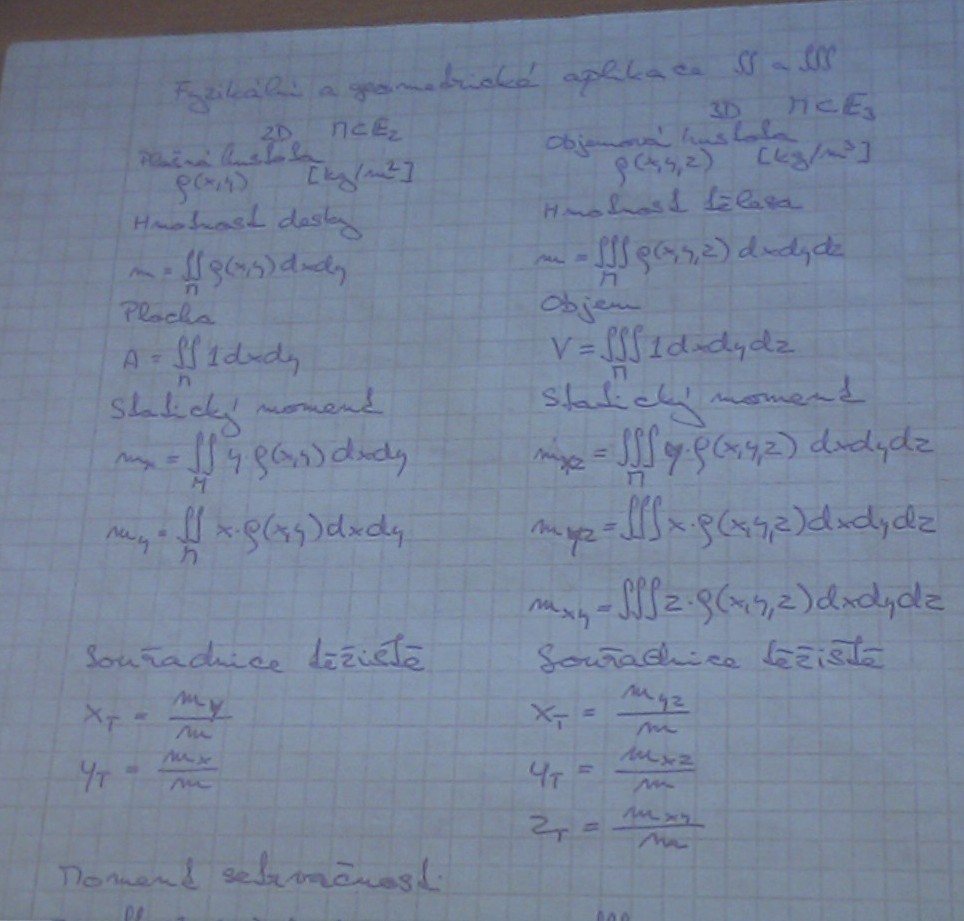 Fyzikální a geometrické aplikace ∬ a ∭
2D M⊂E₂
Plošná hustota
ρ(x,y) [kg/m²]
Hmotnost desky
m = ∬_M ρ(x,y) dxdy
Plocha
A = ∬_M 1 dxdy
Statický moment
m_x = ∬_M y·ρ(x,y) dxdy
m_y = ∬_M x·ρ(x,y) dxdy
Souřadnice těžiště
x_T = m_y / m
y_T = m_x / m
3D M⊂E₃
Objemová hustota
ρ(x,y,z) [kg/m³]
Hmotnost tělesa
m = ∭_M ρ(x,y,z) dxdydz
Objem
V = ∭_M 1 dxdydz
Statický moment
m_xz = ∭_M y·ρ(x,y,z) dxdydz
m_yz = ∭ x·ρ(x,y,z) dxdydz
m_xy = ∭ z·ρ(x,y,z) dxdydz
Souřadnice těžiště
x_T = m_yz / m
y_T = m_xz / m
z_T = m_xy / m
Moment setrvačnosti